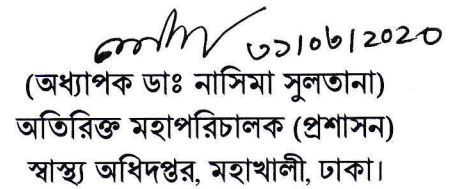 (অধ্যাপক ডাঃ নাসিমা সুলতানা)
অতিরিক্ত মহাপরিচালক (প্রশাসন)
স্বাস্থ্য অধিদপ্তর, মহাখালী, ঢাকা।